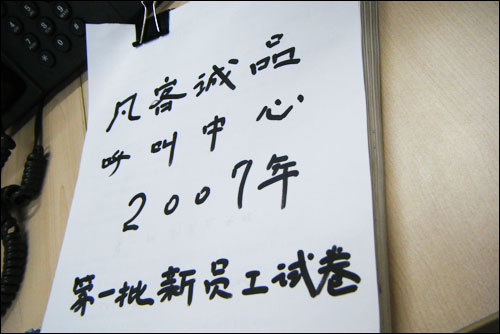 凡客诚品
呼叫中心
2007年
第一批新员工试卷